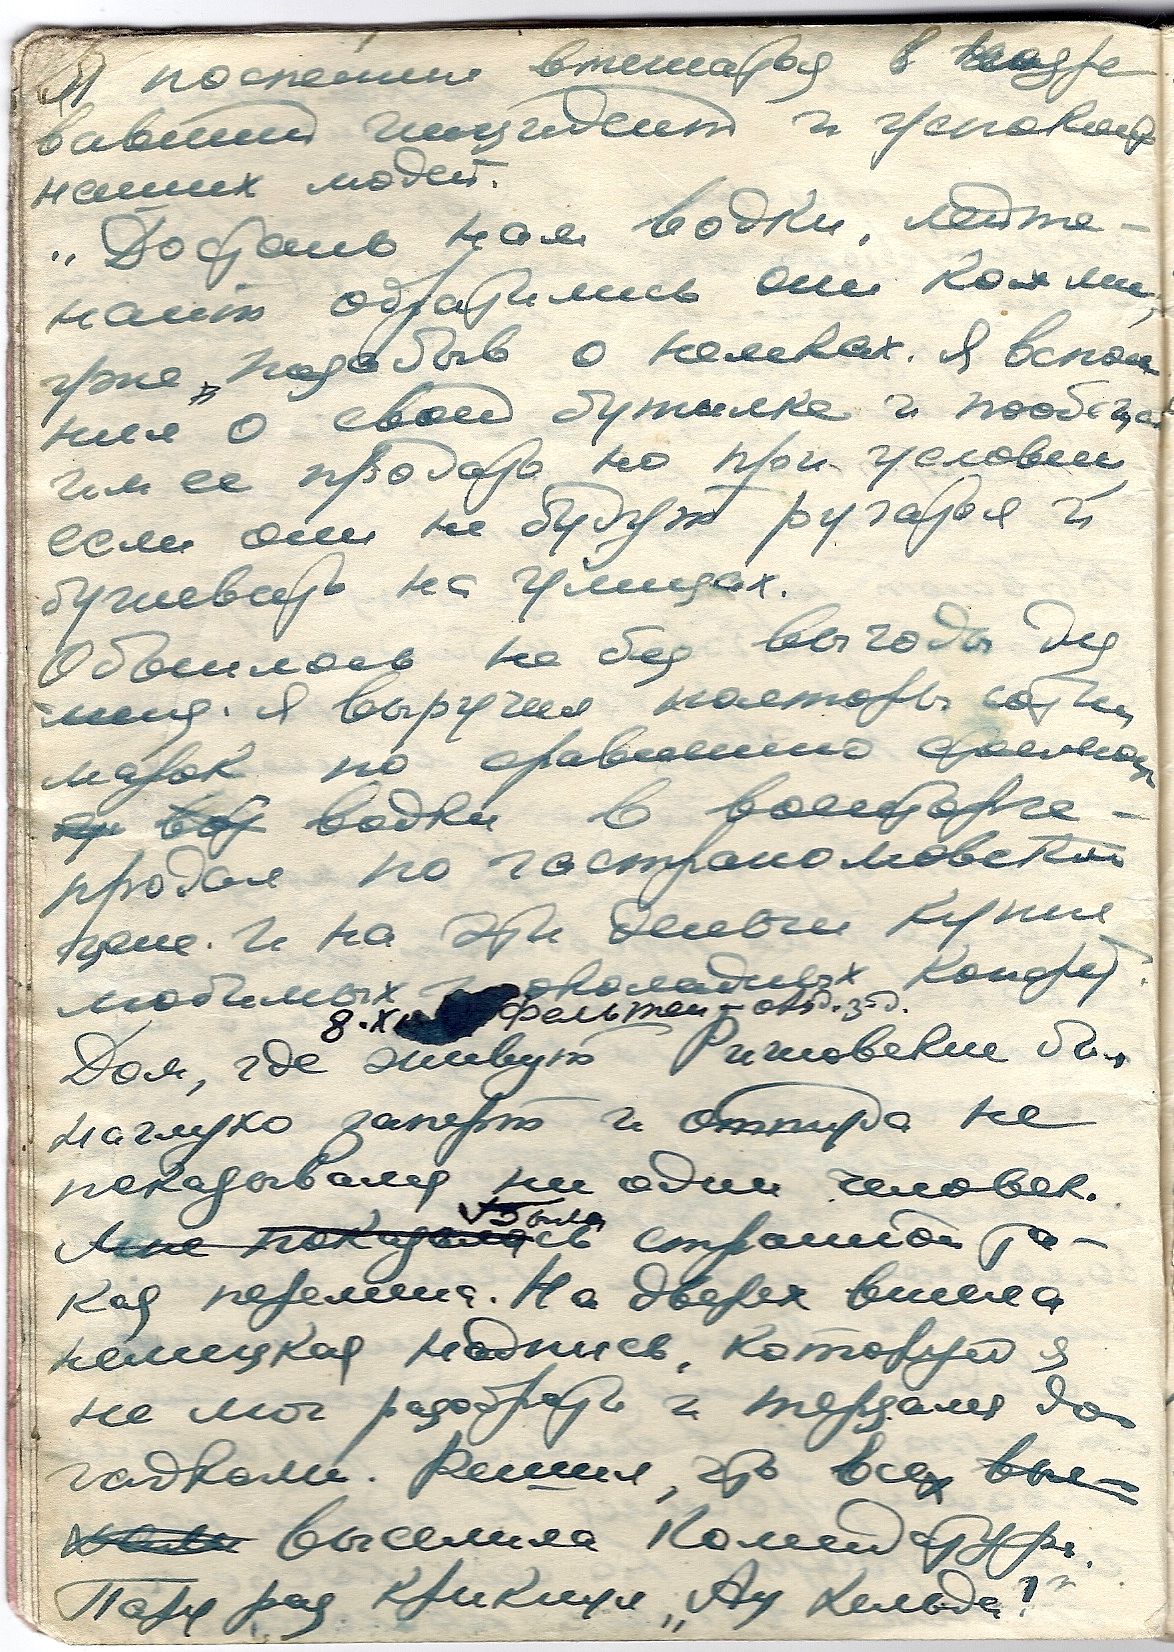 Я поспешил вмешаться в назре
вавший инцидент и успокоил
наших людей.
„Достань нам водки, лейте-
нант обратились они ко мне,
уже, позабыв о немках. Я вспом
нил о своей бутылке и пообещал
им ее продать но при условии
если они не будут ругаться и
бушевать на улицах.
Обошлось не без выгоды для
меня. Я выручил полторы сотни
марок по сравнению
водки в военторге -
продал по гастрономовской
цене. И на эти деньги купил
любимых шоколадных конфет.
8.XII Фельтен - обл. з-д.
Дом, где живут Ришовские был
наглухо заперт и оттуда не
показывался ни один человек.
Мне показалась была странной та-
кая перемена. На дверях висела
немецкая надпись, которую я
не мог разобрать и терзался до-
гадками. Решил, что всех вые-
хали выселила Комендатура.
Пару раз крикнул „Ау Хельда!"